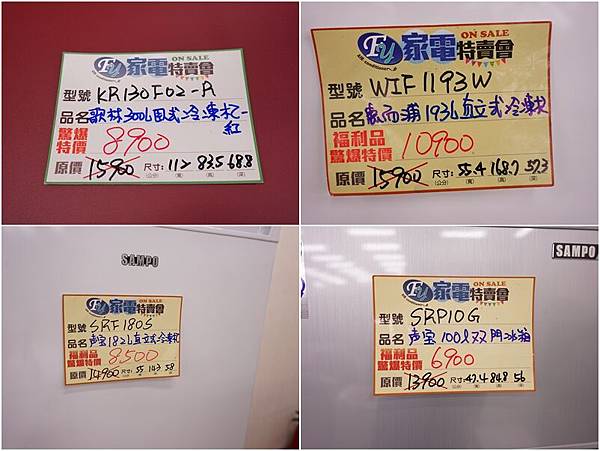 FU 家電特賣會
ON SALE
型號 KR130F02-R
品名 歌林300L臥式冷凍櫃-紅
驚爆特價 8900
原價 15900 尺寸: 112 83.5 68.8
(公分) (寬) (高) (深)
FU 家電特賣會
ON SALE
型號 WIF1193W
品名 惠而浦193L直立式冷凍
福利品
驚爆特價 10900
原價 15900 尺寸: 55.4 168.7 57.3
(公分) (寬) (高) (深)
SAMPO
FU 家電特賣會
ON SALE
型號 SRF180S
品名 声宝182L直立式冷凍
福利品
驚爆特價 8500
原價 14900 尺寸: 55 143 58
SAMPO
FU 家電特賣會
ON SALE
型號 SRP10G
品名 声宝100L双門冰箱
福利品
驚爆特價 6900
原價 13900 尺寸: 47.4 84.8 56